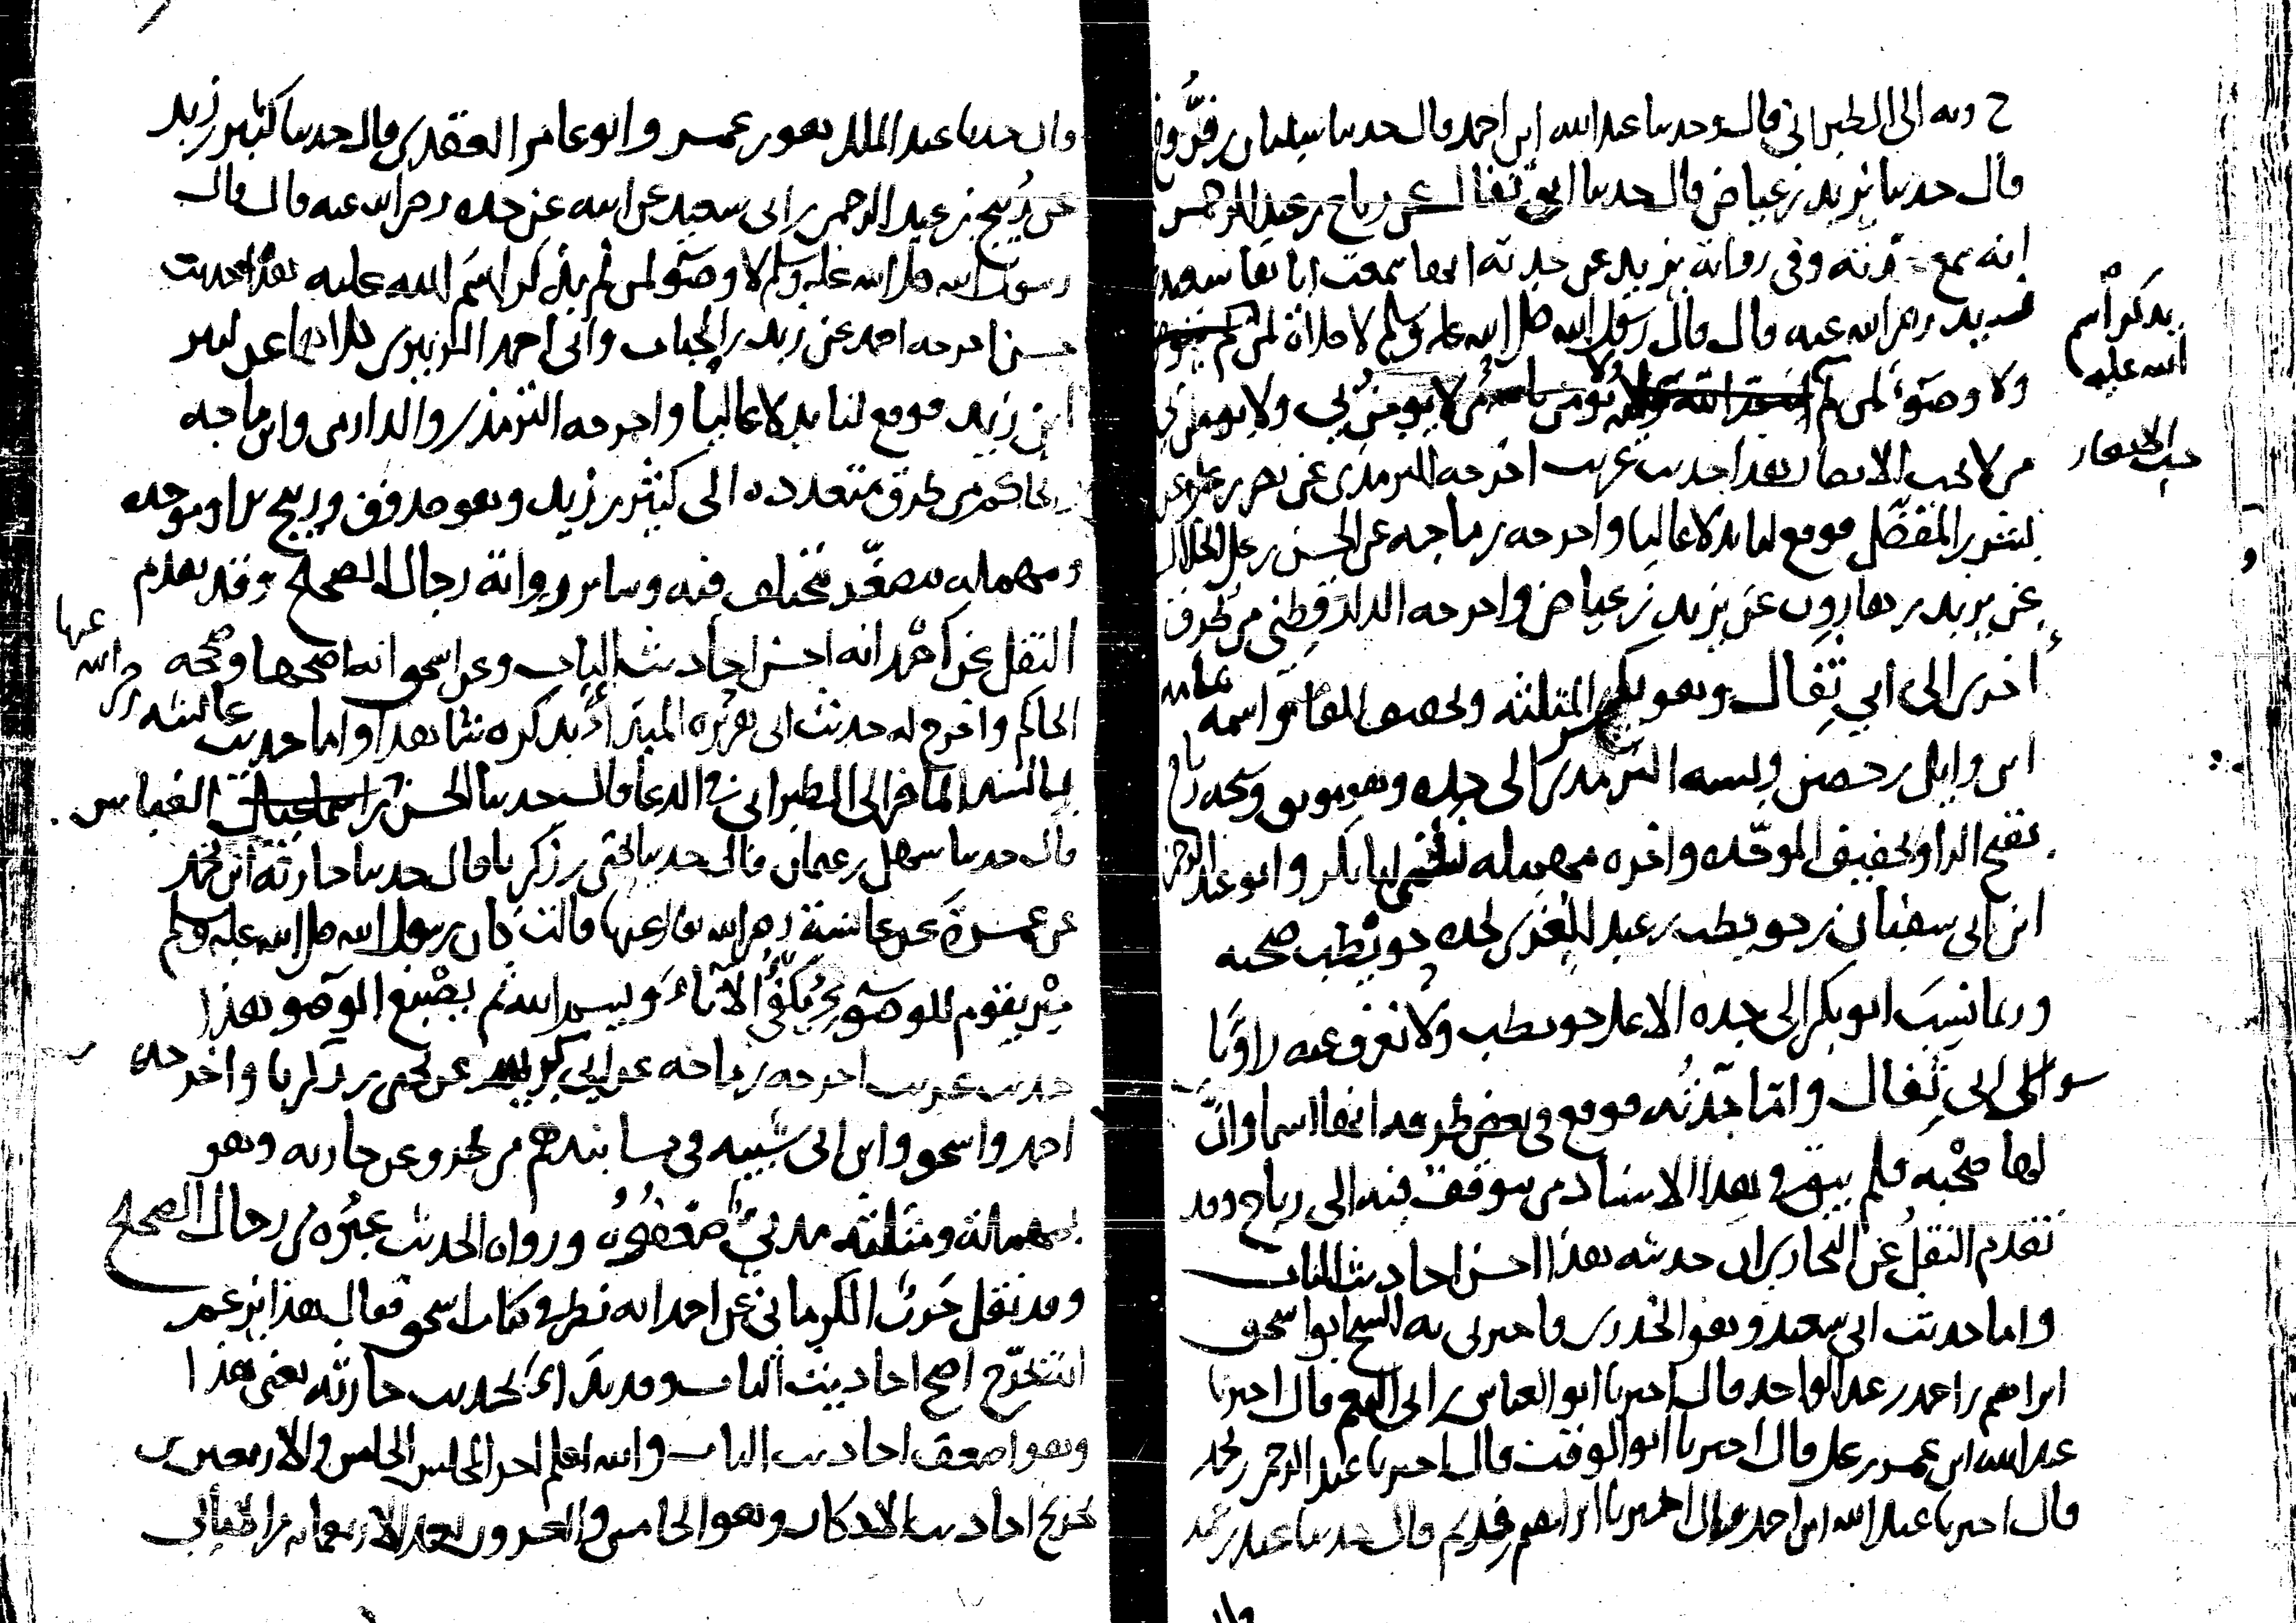 ح وبه الى الطبراني قال وحدثنا عبد الله ابن احمد قال حدثنا سليمان بن فروخ
قال حدثنا يزيد بن عياض قال حدثنا ابي ثفال عن رباح بن عبد الرحمن
انه سمع جدته وفي رواية يزيد عن جدته انها سمعت اباها سعيد
رضي الله عنه قال قال رسول الله صلى الله عليه وسلم لا صلاة لمن لم
يذكر اسم
الله عليه
ولا وضوء لمن لم ولا يؤمن بالله من لا يؤمن بي ولا يؤمن بي
من لا يحب الانصار هذا حديث غريب اخرجه الترمذي عن نصر بن علي عن
حب الانصار
بشر بن المفضل فوقع لنا بدلا عاليا واخرجه بن ماجه عن الحسن بن علي الخلال
عن يزيد بن هارون عن يزيد بن عياض واخرجه الدارقطني من طرق
اخرى الى ابي ثفال وهو بكسر المثلثه وتخفيف الفا واسمه
ابن وايل بن حصين ونسبه الترمذي الى جده وهو موثق وشيخه رباح
بفتح الرا وتخفيف الموحده واخره مهمله يكنى ابا بكر وابو عبد الرحمن
ابن ابي سفيان بن حويطب بن عبد العزى لجده حويطب صحبه
وربما نسب ابو بكر الى جده الاعلى حويطب ولا نعرف عنه راويا
سوى ابي ثفال واما جدته فوقع في بعض طرقه انها اسما وان
لها صحبه فلم يبق في هذا الاسناد من يتوقف فيه الى رباح وقد
تقدم النقل عن البخاري ان حديثه هذا احسن احاديث الباب
واما حديث ابي سعيد وهو الخدري فاخبرني به الشيخ ابو اسحق
ابراهيم بن احمد بن عبد الواحد قال اخبرنا ابو العباس بن ابي النعم قال اخبرنا
عبد الله ابن عمر بن علي قال اخبرنا ابو الوقت قال اخبرنا عبد الرحمن بن محمد
قال اخبرنا عبد الله ابن احمد قال اخبرنا ابراهيم بن خريم قال حدثنا عبد بن حميد
قال
قال حدثنا عبد الملك هو بن عمر وابو عامر العقدي قال حدثنا كثير بن زيد
عن ربيح بن عبد الرحمن بن ابي سعيد عن ابيه عن جده رضي الله عنه قال قال
رسول الله صلى الله عليه وسلم لا وضوء لمن لم يذكر اسم الله عليه هذا حديث
حسن اخرجه احمد عن زيد بن الحباب وابي احمد الزبيري كلاهما عن كثير
ابن زيد فوقع لنا بدلا عاليا واخرجه الترمذي والدارمي وابن ماجه
والحاكم من طرق متعدده الى كثير بن زيد وهو صدوق وربيح برا وموحده
ومهمله مصغر مختلف فيه وسائر رواته رجال الصحيح وقد تقدم
النقل عن احمد انه احسن احاديث الباب وعن اسحق انه اصحها وصححه
الحاكم واخرج له حديث ابي هريره المبدا بذكره شاهدا واما حديث عائشه رضي الله
عنها
فبالسند الماضي الى الطبراني في الدعا قال حدثنا الحسن بن العباس
قال حدثنا سهل بن عثمان قال حدثنا يحيى بن زكريا قال حدثنا حارثة ابن محمد
عن عمرة عن عائشة رضي الله تعالى عنها قالت كان رسول الله صلى الله عليه وسلم
حين يقوم للوضوء يكفئ الاناء ويسم الله ثم يصبغ الوضوء هذا
حديث غريب اخرجه بن ماجه عن ابي كريب عن يحيى بن زكريا واخرجه
احمد واسحق وابن ابي شيبه في مسانيدهم من طرق عن حارثه وهو
بمهملة ومثلثه مدني ضعفوه ورواه الحديث غيره من رجال الصحيح
وقد نقل حرب الكرماني عن احمد انه نظر في كتاب اسحق فقال هذا يزعم
انه يخرج اصح احاديث الباب وقد بدا بحديث حارثه يعني هذا
وهو اضعف احاديث الباب والله اعلم اخر المجلس الخامس والاربعين من
تخريج احاديث الاذكار وهو الخامس والعشرون بعد الاربعمائه من الامالي